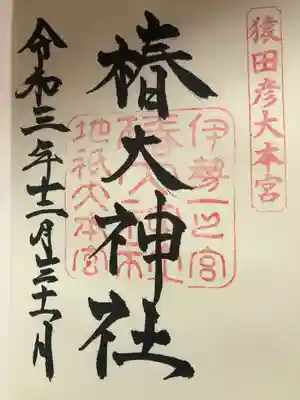 猿田彦大本宮
伊勢一之宮
地祇大本宮
椿大神社
令和三年十二月三十一日